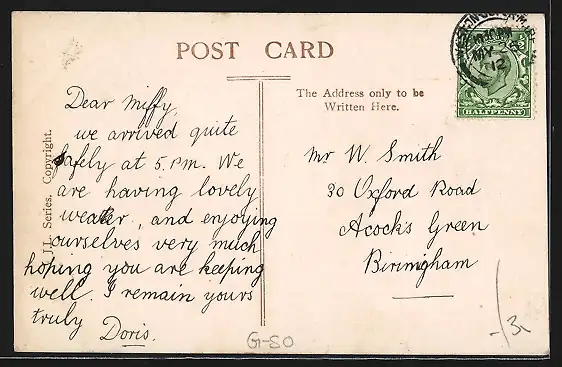 POST CARD
Dear Miffy,
we arrived quite
safely at 5. P.M. We
are having lovely
weater, and enjoying
ourselves very much
hoping you are keeping
well. I remain yours
truly
Doris.
J.L. Series. Copyright.
The Address only to be
Written Here.
Mr W. Smith
30 Oxford Road
Acocks Green
Birmigham
HALFPENNY
G-SO